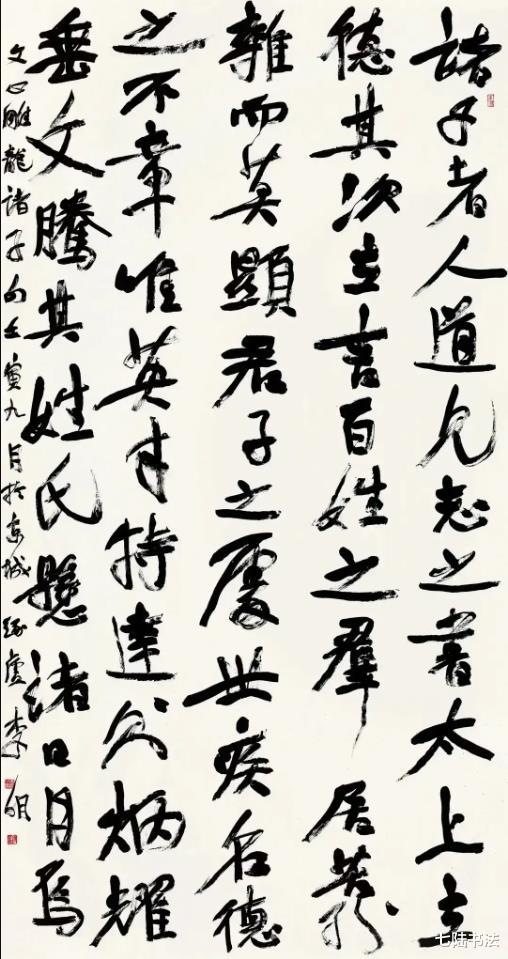 諸子者人道见志之書太上立
德其次立言百姓之羣居苦紛
雜而莫顯君子之處世疾名德
之不章唯英才特達则炳耀
垂文騰其姓氏懸諸日月焉
文心雕龍諸子句壬寅九月於东城廬李
七陆书法